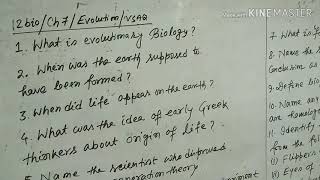 Made with KINEMASTER
12 bio/Ch 7/Evolution/VSAQ
1. What is evolutionary Biology?
2. When was the earth supposed to
have been formed?
3. When did life appear on the earth?
4. What was the idea of early Greek
thinkers about origin of life?
5. Name the scientist who disproved
generation theory.
7. What is
8. Name the s
Conclusion as
9. Define bio
10. Name any
are homolog
11. Identify
from the fol
(i) Flippers
(ii) Eyes of